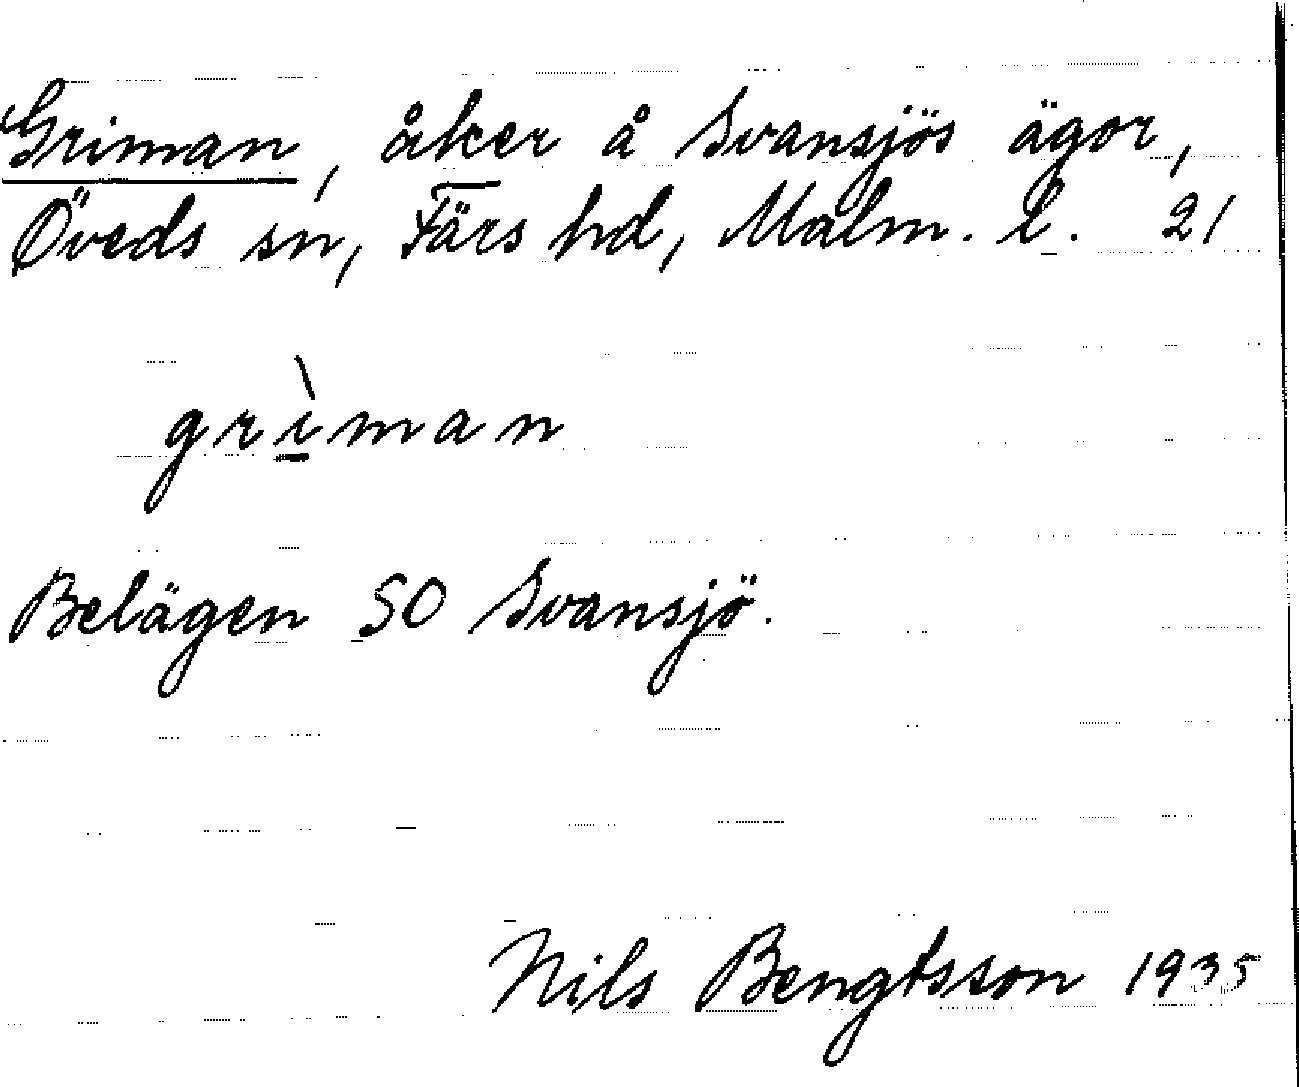 Griman, åker å Svansjös ägor,
Öveds sn, Färs hd, Malm. l. 21
grìman
Belägen SO Svansjö.
Nils Bengtsson 1935